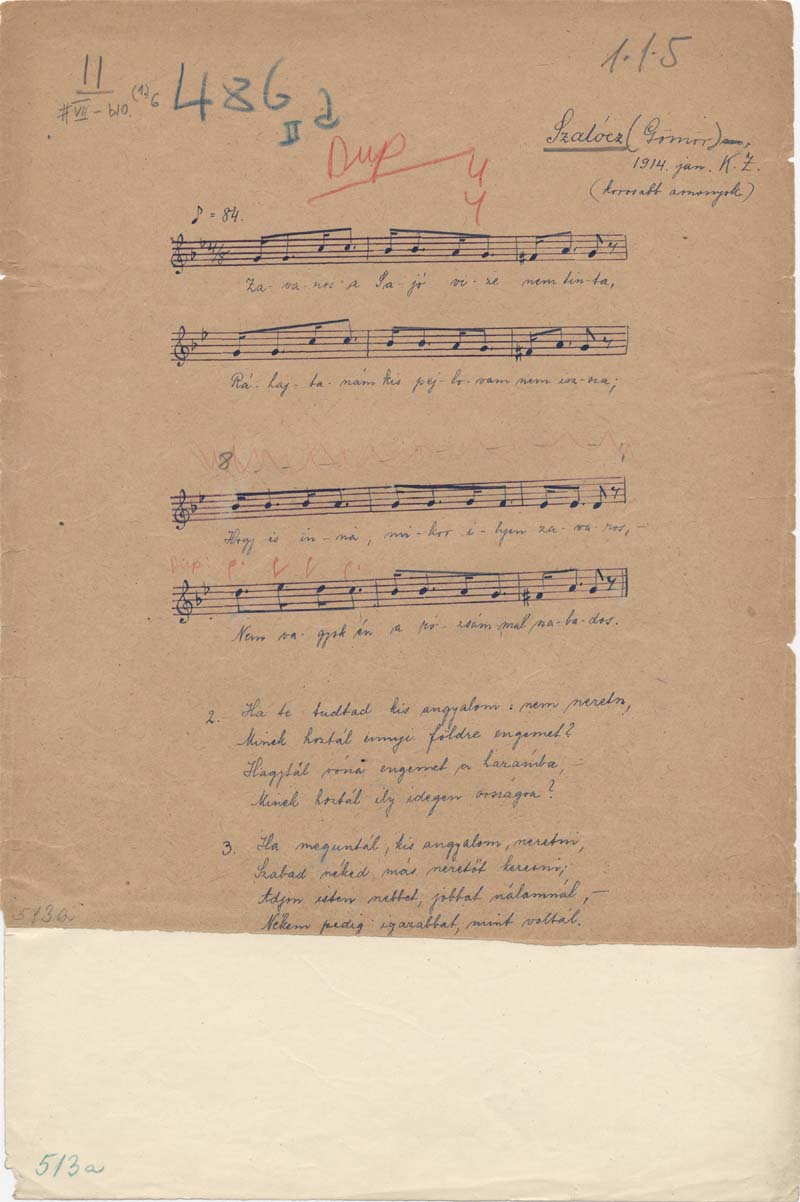 11
1.1.5
#VII - b10. (1)6
486
II d
Szalócz (Gömör)
1914. jan. K. Z.
(korosabb asszonyok)
Dup 4
4
♪ = 84.
4/8
Za-va-ros a Sa-jó vi-ze nem tin-ta,
Rá-haj-ta-nám kis pej-lo-vam nem isz-sza;
8
Hogy is in-ná, mi-kor i-lyen za-va-ros, –
Dup:
Nem va-gyok én a ró-zsám-mal sza-ba-dos.
2. Ha te tudtad kis angyalom: nem szeretsz,
Minek hoztál ennyi földre engemet?
Hagytál vóna engemet a hazámba, –
Minek hoztál ily idegen országra?
3. Ha meguntál, kis angyalom, szeretni,
Szabad néked más szeretőt keresni;
Adjon isten szebbet, jobbat nálamnál, –
Nékem pedig igazabbat, mint voltál.
513a
513a